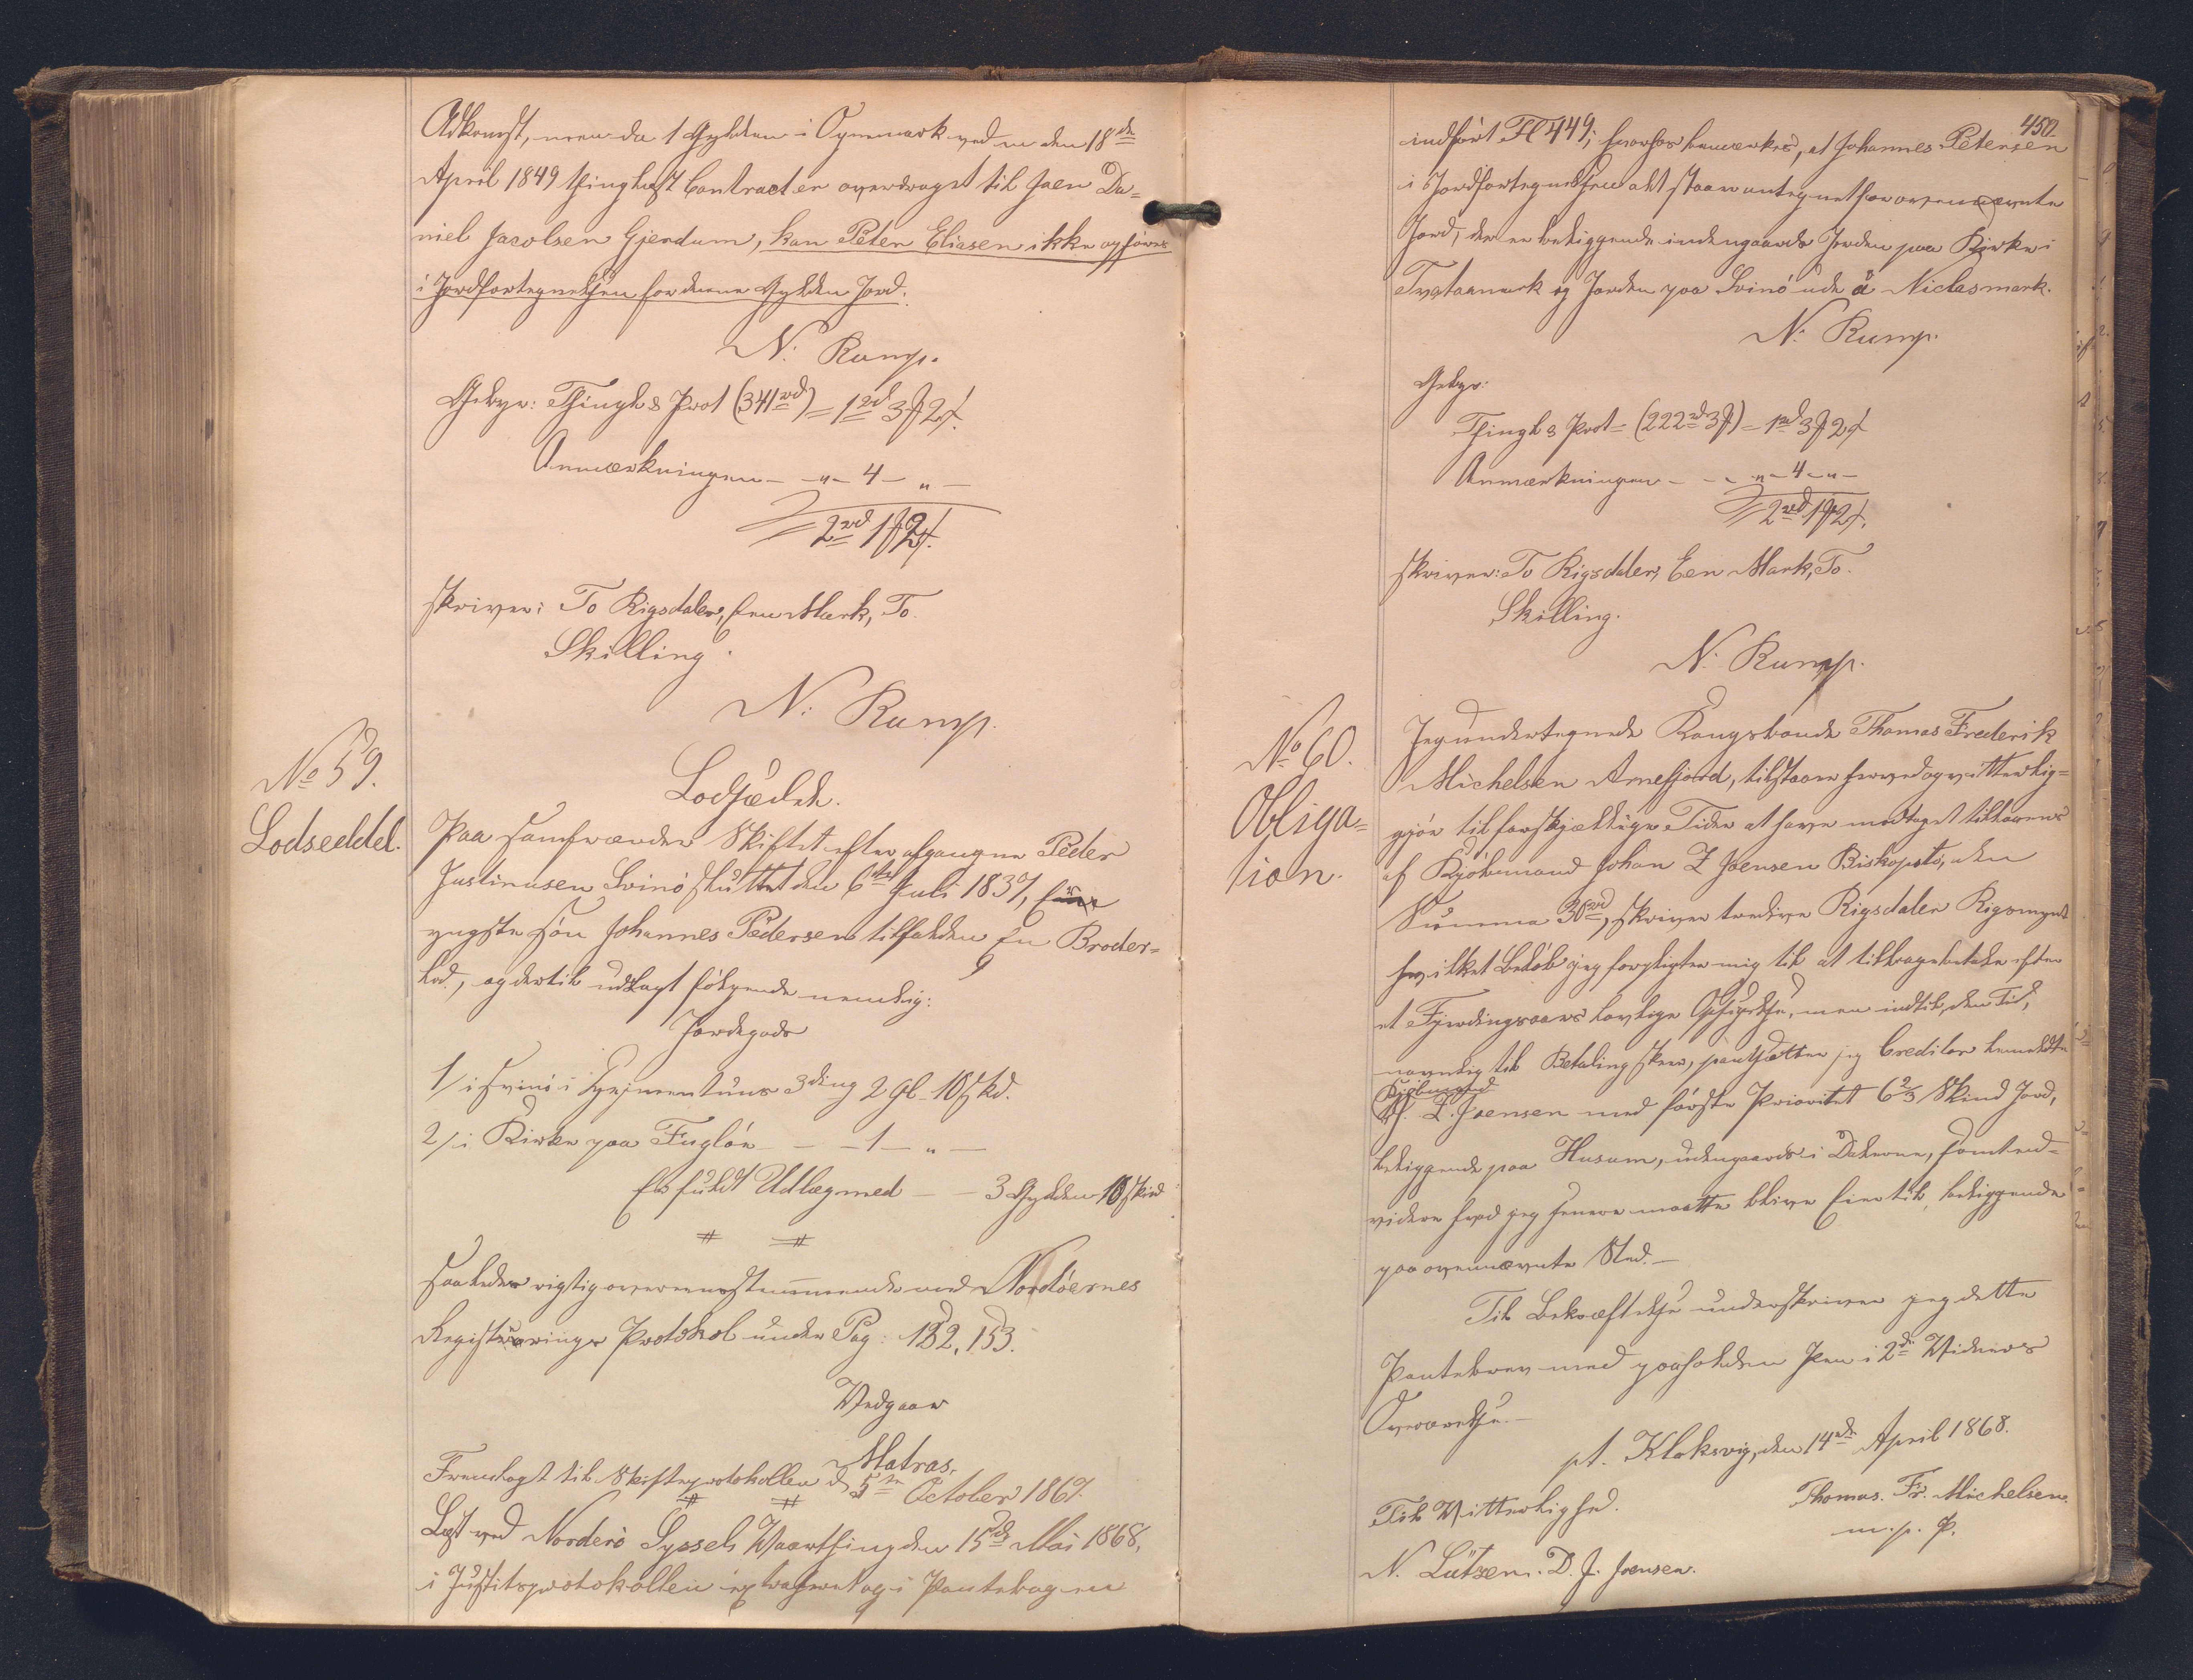 Adkomst, men da 1 Gylden i Oyremark ved en den 18de
April 1849 thinglæst Contract er overdraget til Joen Da=
niel Jacobsen Gjerdum, kan Peter Eliasen ikke opføres
i Jordfortegnelsen for denne Gylden Jord.
N: Rump.
Gebyr: Thingl & Prot (341rd) = 1rd 3 ₰ 2 ß.
Anmærkningen - -"- 4 - " -
= 2rd 1 ₰ 2 ß.
skriver: To Rigsdaler, Een Mark, To
Skilling.
N: Rump.
No 59.
Lodseddel.
Lodseddel.
Paa Samfrænder Skiftet efter afgangne Peder
Justinusen Svinø sluttet den 6te Juli 1837, er
yngste Søn Johannes Pedersen tilfalden En Broder=
lod, og dertil udlagt følgende nemlig:
Jordegods
1/ i Svinø i 3ding 2 Gl - 10 Skd.
2/ i Kirke paa Fuglø - - 1 - " -
Er fuldt Udlæg med - - 3 Gylden 10 Skind
Saaledes rigtig overeensstemmende med Nordøernes
Registrerings Protokol under Pag: 152, 153.
Vedgaar
Matras.
Fremlagt til Skifteprotokollen d. 5te October 1867.
Læst ved Norderø Syssels Vaarthing den 15de Mai 1868,
i Justitsprotokollen extraheret og i Pantebogen
450.
indført Fl 449; hvorhos bemærkes, at Johannes Petersen
i Jordfortegnelsen alt staar antegnet for ovennævnte
Jord, der er beliggende indengaards Jorden paa Kirke i
Tvataamark og Jorden paa Svinø ude á Niclasmark.
N: Rump.
Gebyr:
Thingl & Prot = (222rd 3 ₰) = 1rd 3 ₰ 2 ß
Anmærkningen - - - " - 4 - " -
= 2rd 1 ₰ 2 ß.
skriver: To Rigsdaler, Een Mark, To
Skilling.
N. Rump.
No 60.
Obliga=
tion.
Jeg undertegnede Kongsbonde Thomas Frederik
Michelsen Arnefjord, tilstaaer herved og vitterlig=
gjør til forskjellige Tider at have modtaget tillaans
af Kjøbmand Johan Z Joensen Biskopstø, den
Summa 30rd, skriver tredive Rigsdaler Rigsmynt
hvilket Beløb jeg forpligter mig til at tilbagebetale efter
et Fjerdingaars lovlige Opsigelse, men indtil den Tid,
nøiagtig til Betaling skeer, pantsætter jeg Creditor bemeldte
Kjøbmand
Joh. Z. Joensen med første Prioritet 6 2/3 Skind Jord,
beliggende paa Husum, udengaards i Dalerne, samt end=
videre hvad jeg senere maatte blive Eier til, beliggende
paa ovennævnte Sted.-
Til Bekræftelse underskriver jeg dette
Pantebrev med paaholden Pen i 2de Vidners
Overværelse.-
pt. Klaksvig, den 14de April 1868.
Thomas. Fr. Michelsen
m. p. P.
Til Vitterlighed.
N. Lützen. D. J. Joensen.